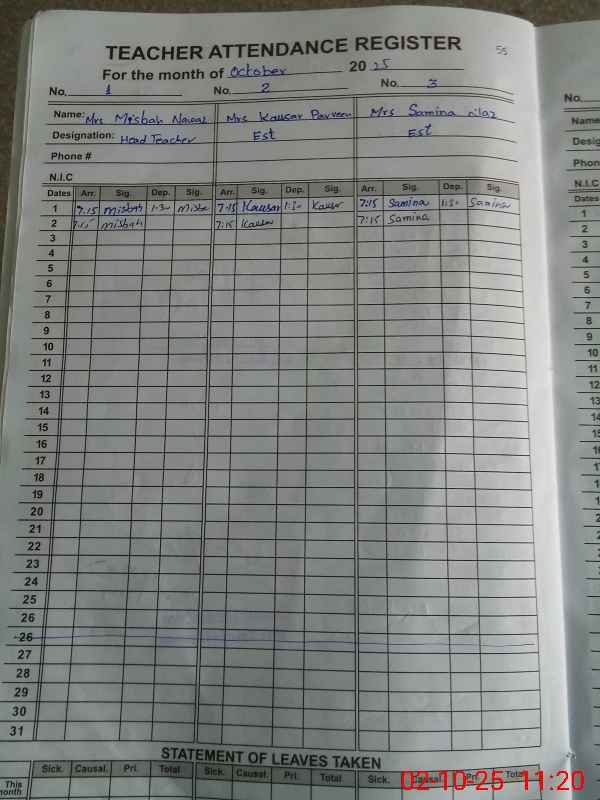 55
TEACHER ATTENDANCE REGISTER
For the month of October 2025
No. 1 No. 2 No. 3
Name: Mrs Misbah Nawaz Mrs Kausar Parveen Mrs Samina nilaz
Designation: Head Teacher Est Est
Phone #
N.I.C
Dates Arr. Sig. Dep. Sig. Arr. Sig. Dep. Sig. Arr. Sig. Dep. Sig.
1 7:15 Misbah 1:30 Misba 7:15 Kausar 1:30 Kausar 7:15 Samina 1:30 Samina
2 7:15 Misbah 7:15 Kausar 7:15 Samina
3
4
5
6
7
8
9
10
11
12
13
14
15
16
17
18
19
20
21
22
23
24
25
26
26
27
28
29
30
31
STATEMENT OF LEAVES TAKEN
Sick. Causal. Pri. Total Sick. Causal. Pri. Total Sick. Causal. Pri. Total
This month
No.
Name
Desig
Phon
N.I.C
Dates
1
2
3
4
5
6
7
8
9
10
11
12
13
14
15
16
02-10-25 11:20